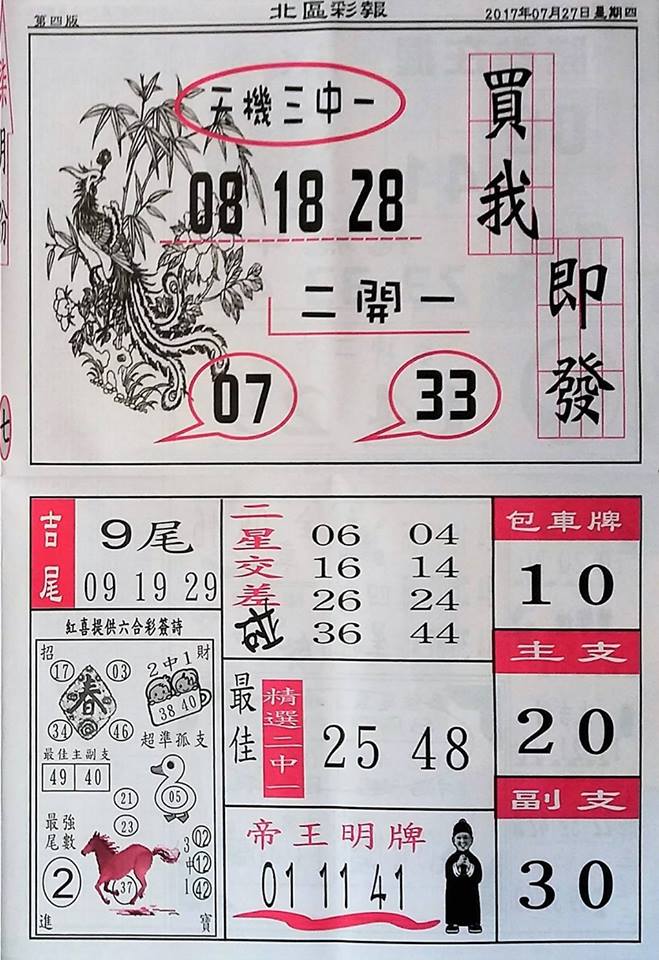 第四版
北區彩報
2017年07月27日星期四
天機三中一
08 18 28
二開一
07
33
買我
即發
七
吉尾
9尾
09 19 29
紅喜提供六合彩簽詩
招
財
17
03
春
34
46
2中1
38 40
超準孤支
05
最佳主副支
49 40
21
23
最強尾數
2
37
3中1
02
12
42
進
寶
二星交差
06 04
16 14
26 24
36 44
最佳
精選二中一
25 48
帝王明牌
01 11 41
包車牌
10
主支
20
副支
30